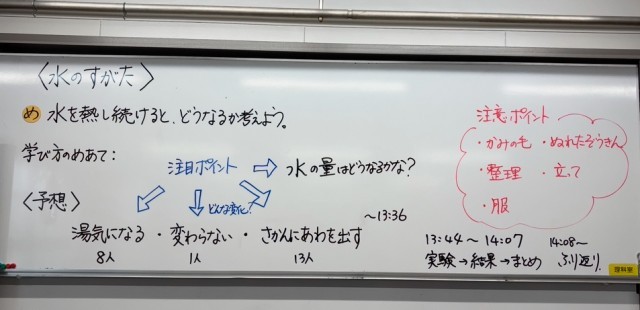 〈水のすがた〉
め 水を熱し続けると、どうなるか考えよう。
学び方のめあて：
注目ポイント ⇨ 水の量はどうなるかな？
どんな変化？
〈予想〉
～13:36
湯気になる ・ 変わらない ・ さかんにあわを出す
8人 1人 13人
注意ポイント
・かみの毛 ・ぬれたぞうきん
・整理 ・立って
・服
13:44～14:07 14:08～
実験→結果→まとめ ふり返り
理科室